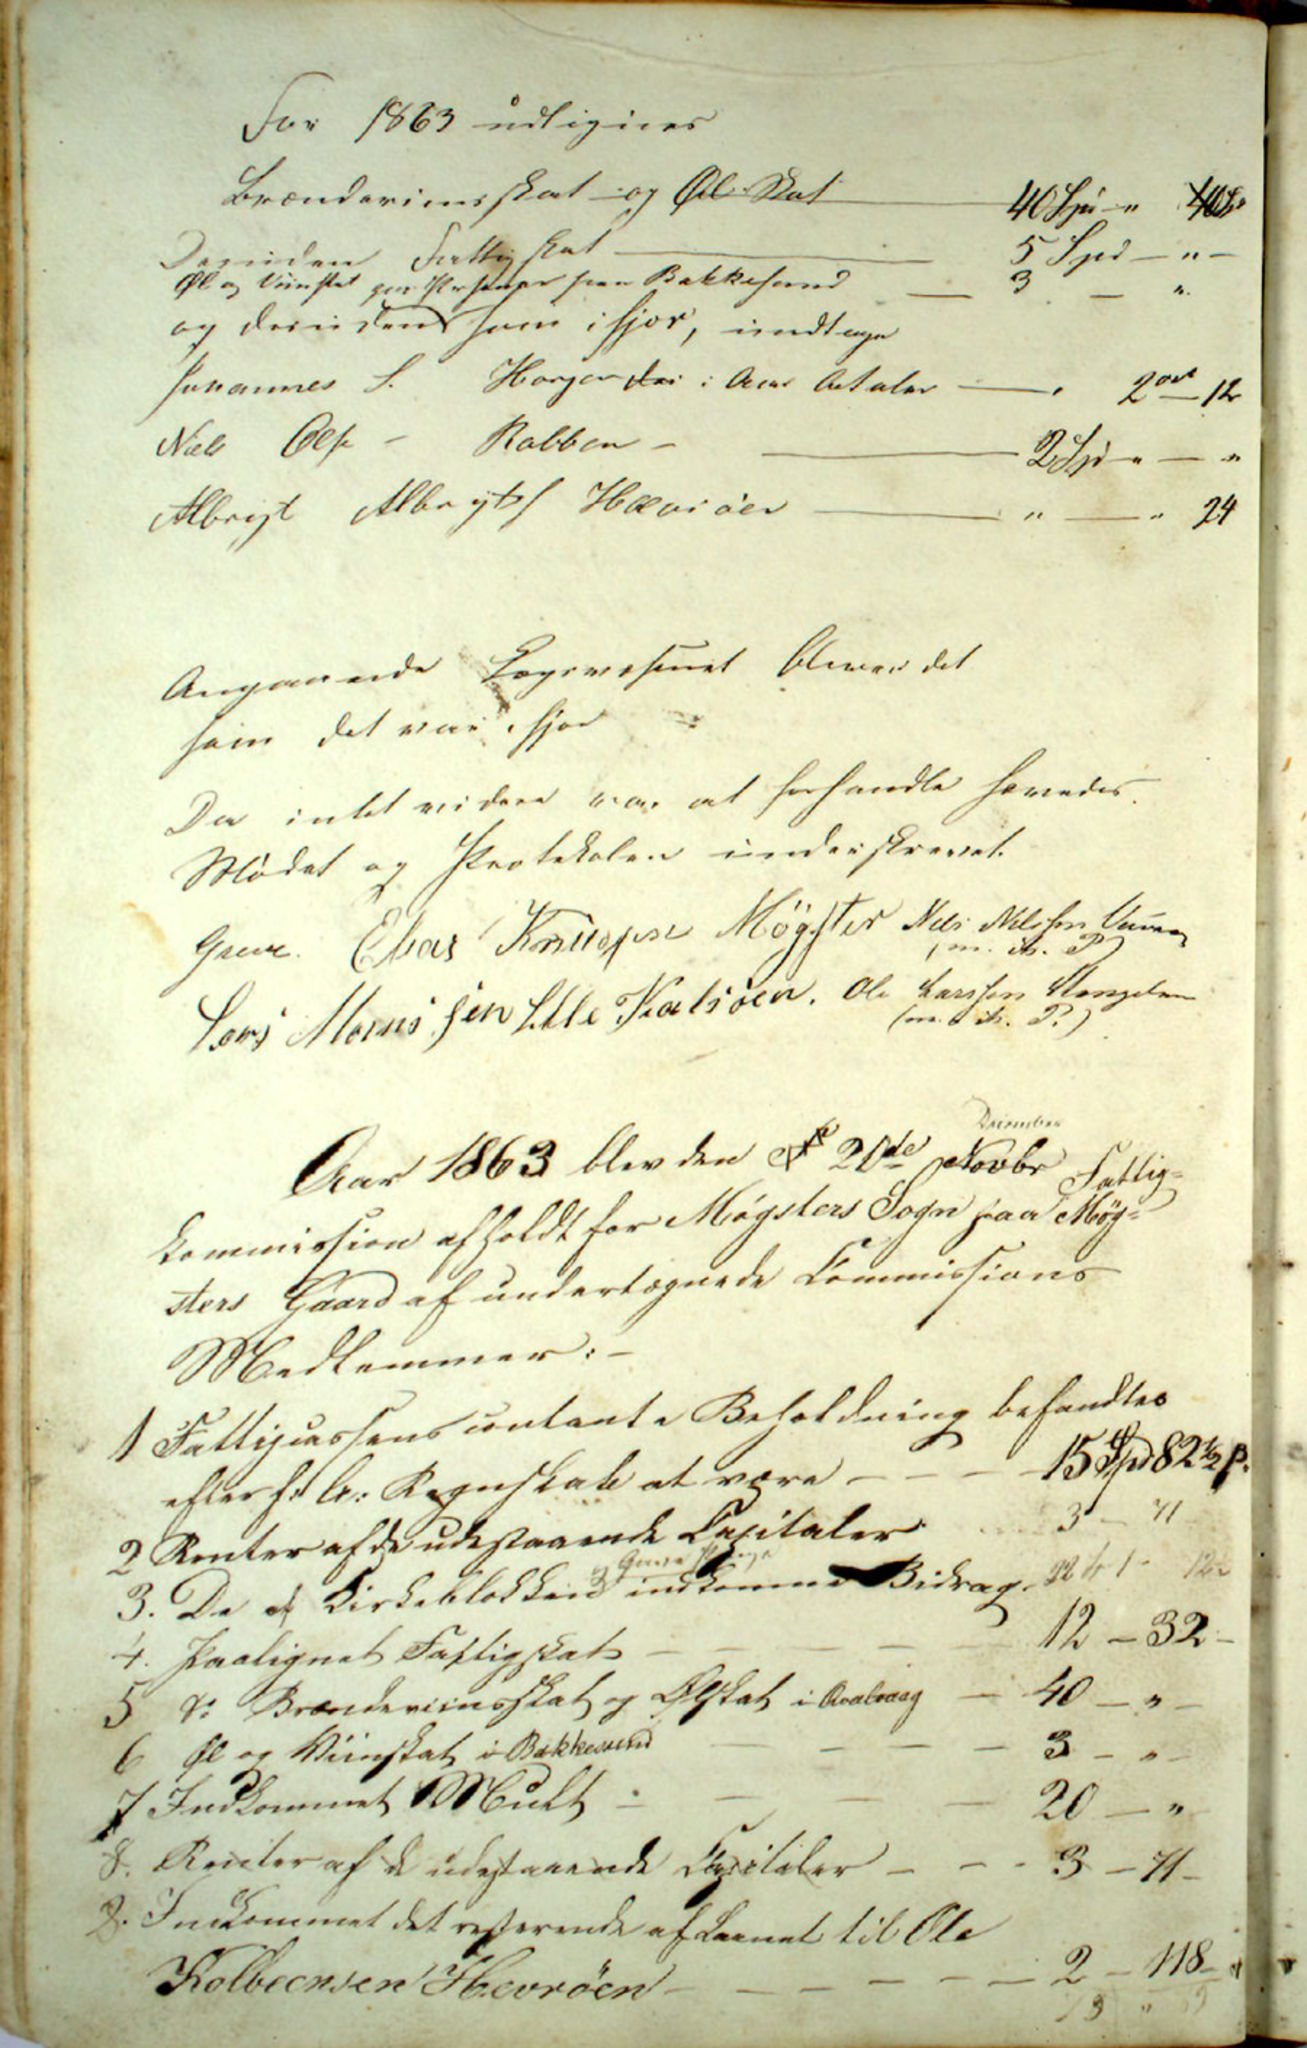 For 1863 udlignes
Brændeviinsskat og Øl Skat 40 Spd - " 40 s
Desuden Fattigskat 5 Spd - " -
Øl og Viinskat paa Bakkesund 3 - "
og desuden som ifjor, undtage
Johannes S. Horgen i Aar betaler 2 ort 12
Niels Ols - Rabben - 2 Spd " - "
Albrigt Albrigts Hævröen " - " 24
Angaaende Lægsvæsenet bliver det
som det var ifjor
Da intet videre var at forhandle hævedes
Mödet og Protokolen underskrevet.
Greve. Elias Knudsen Mögster Niels Nilssen
(m. i. P.)
Lars Monssen Lille Kalsöen. Ole Larssen
(m. i. P.)
December
Aar 1863 blev den 21de Novbr Fattig=
kommission afholdt for Møgsters Sogn paa Møg=
sters Gaard af undertegnede Commissions
Medlemmer: -
1 Fattigcassens contante Beholdning befandtes
efter f: A: Regnskab at være - - - 15 Spd 82 1/2 ß.
2 Renter af de udestaaende Capitaler 3 - 71
3. De af Kirkeblokken indkomne Bidrag
4. Paalignet Fattigskat - - - - 12 - 32 -
5 do Brændeviinsskat og Ølskat i - 40 - " -
6 Øl og Viinskat i Bakkesund - - - - 3 - " -
7 Indkommet Mult - - - - 20 - "
8. Renter af de udestaaende Capitaler - - - 3 - 71 -
8. Indkommet det resterende af Laanet til Ole
Kolbeensen Hevröen - - - - - 2 - 118 -